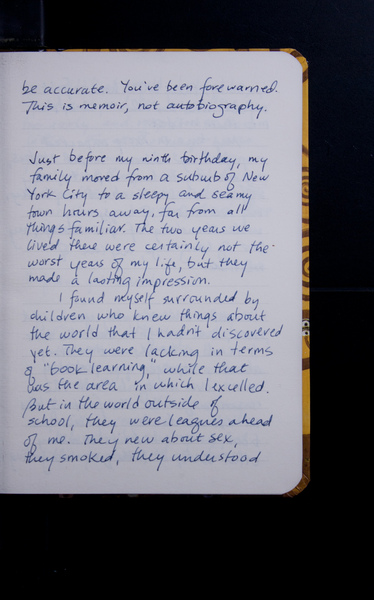 be accurate. You've been forewarned.
This is memoir, not autobiography.
Just before my ninth birthday, my
family moved from a suburb of New
York City to a sleepy and seamy
town hours away, far from all
things familiar. The two years we
lived there were certainly not the
worst years of my life, but they
made a lasting impression.
I found myself surrounded by
children who knew things about
the world that I hadn't discovered
yet. They were lacking in terms
of "book learning," while that
was the area in which I excelled.
But in the world outside of
school, they were leagues ahead
of me. They new about sex,
they smoked, they understood